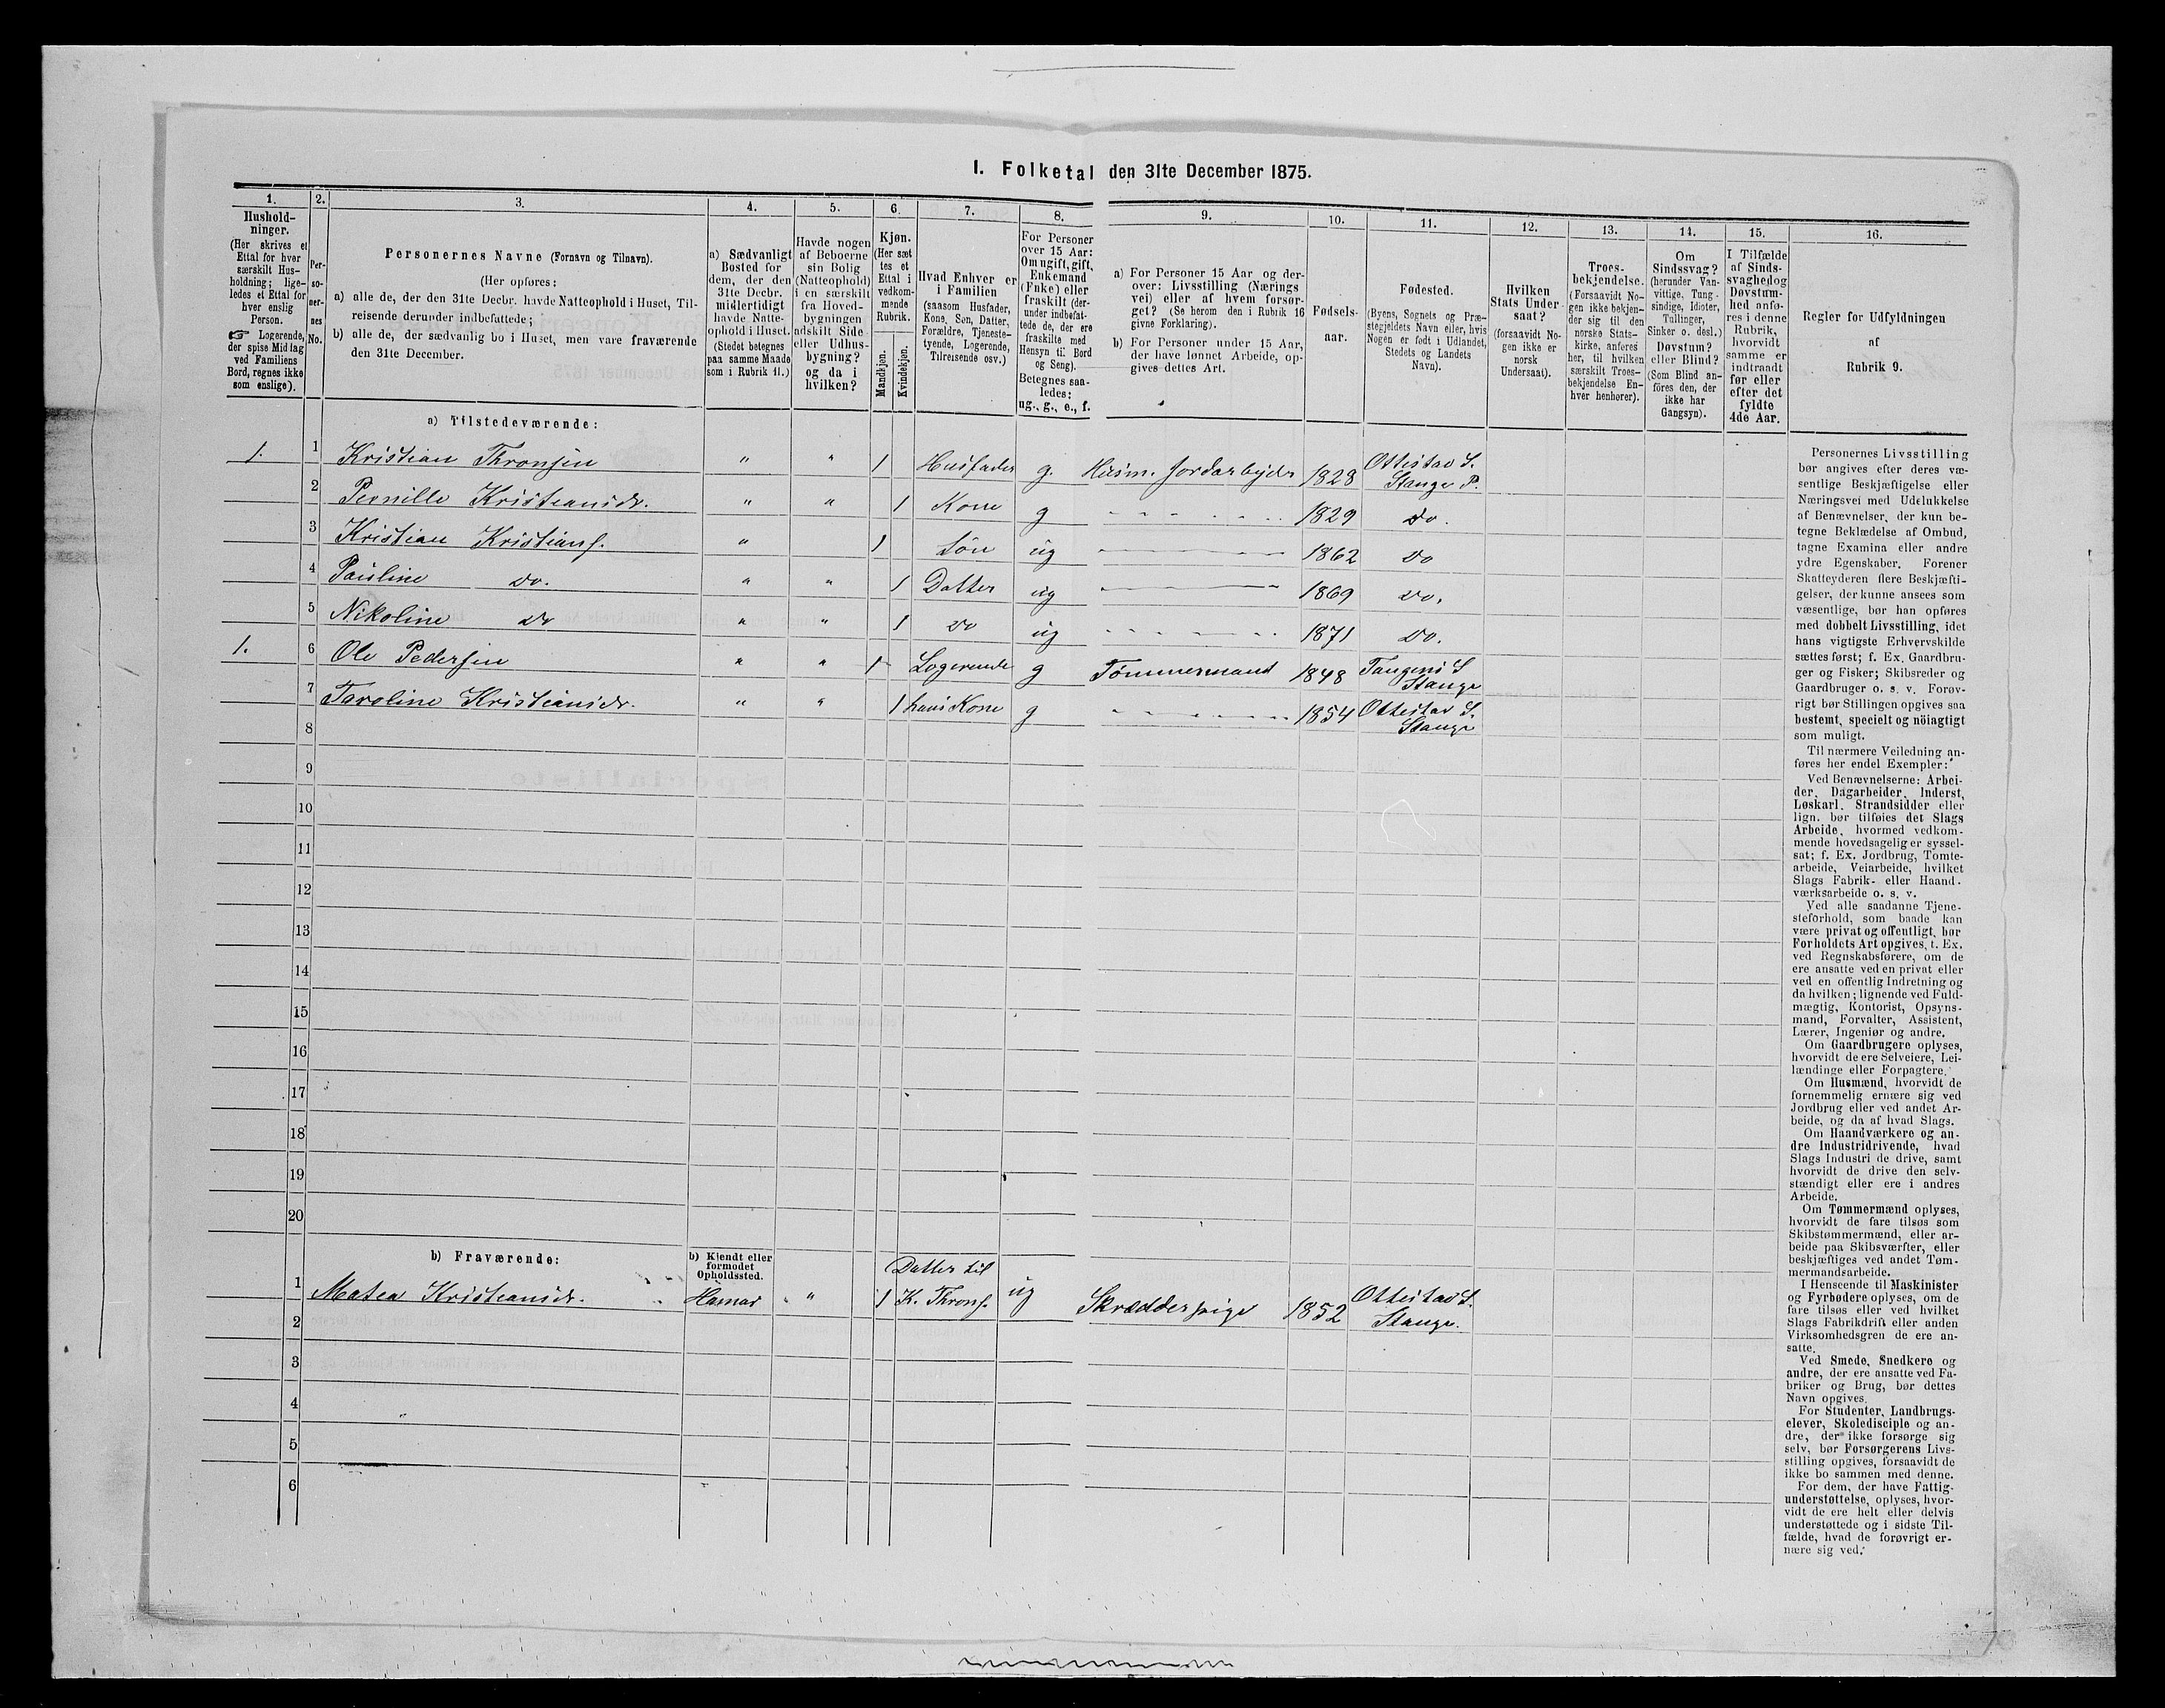 I. Folketal den 31te December 1875.
1. 2. 3. 4. 5. 6. 7. 8. 9. 10. 11. 12. 13. 14. 15. 16.
Hushold-
ninger.
(Her skrives et
Ettal for hver
særskilt Hus-
holdning; lige-
ledes et Ettal for
hver enslig
Person.
☞ Logerende,
der spise Middag
ved Familiens
Bord, regnes ikke
som enslige).
Per-
so-
ner-
nes
No.
Personernes Navne (Fornavn og Tilnavn).
(Her opføres:
a) alle de, der den 31te Decbr. havde Natteophold i Huset, Til-
reisende derunder indbefattede;
b) alle de, der sædvanlig bo i Huset, men vare fraværende
den 31te December.
a) Sædvanligt
Bosted for
dem, der den
31te Decbr.
midlertidigt
havde Natte-
ophold i Huset.
(Stedet betegnes
paa samme Maade
som i Rubrik 11.)
Havde nogen
af Beboerne
sin Bolig
(Natteophold)
i en særskilt
fra Hoved-
bygningen
adskilt Side-
eller Udhus-
bygning?
og da i
hvilken?
Kjøn.
(Her sæt
tes et
Ettal i
vedkom-
mende
Rubrik.
Mandkjøn.
Kvindekjøn.
Hvad Enhver er
i Familien
(saasom Husfader,
Kone, Søn, Datter,
Forældre, Tjeneste-
tyende, Logerende,
Tilreisende osv.)
For Personer
over 15 Aar:
Om ugift, gift,
Enkemand
(Enke) eller
fraskilt (der-
under indbefat-
tede de, der ere
fraskilte med
Hensyn til Bord
og Seng).
Betegnes saa-
ledes:
ug., g., e., f.
a) For Personer 15 Aar og der-
over: Livsstilling (Nærings
vei) eller af hvem forsør-
get? (Se herom den i Rubrik 16
givne Forklaring).
b) For Personer under 15 Aar,
der have lønnet Arbeide, op-
gives dettes Art.
Fødsels-
aar.
Fødested.
(Byens, Sognets og Præ-
stegjeldets Navn eller, hvis
Nogen er født i Udlandet,
Stedets og Landets
Navn).
Hvilken
Stats Under-
saat?
(forsaavidt No-
gen ikke er
norsk
Undersaat).
Troes-
bekjendelse.
(Forsaavidt No-
gen ikke bekjen-
der sig til den
norske Stats-
kirke, anføres
her, til hvilken
særskilt Troes-
bekjendelse En-
hver henhører).
Om
Sindssvag?
(herunder Van-
vittige, Tung-
sindige, Idioter,
Tullinger,
Sinker o. desl.)
Døvstum?
eller Blind?
(Som Blind an-
føres den, der
ikke har
Gangsyn).
I Tilfælde
af Sinds-
svaghed og
Døvstum-
hed anfø-
res i denne
Rubrik,
hvorvidt
samme er
indtraadt
før eller
efter det
fyldte
4de Aar.
Regler for Udfyldningen
af
Rubrik 9.
a) Tilstedeværende:
1. 1 Kristian Thronsen " " 1 Husfader g. Husm. Jordarbejder 1828 Ottestad S.
Stange P.
2 Pernille Kristiansdr. " " 1 Kone g 1829 Do.
3 Kristian Kristians. " 1 Søn ug 1862 Do
4 Pauline Do. " " 1 Datter ug 1869 Do.
5 Nikoline Do " " 1 Do ug 1871 Do.
1. 6 Ole Pedersen " " 1 Logerende g Tømmermand 1848 Tangens S
Stange
7 Karoline Kristiansdr. " " 1 hans Kone g 1854 Ottestad S.
Stange
8
9
10
11
12
13
14
15
16
17
18
19
20
b) Fraværende:
b) Kjendt eller
formodet
Opholdssted.
Datter til
1 Matea Kristiansdr. Hamar " 1 K. Throns. ug Skrædderpige 1852 Ottestad S.
Stange.
2
3
4
5
6
Personernes Livsstilling
bør angives efter deres væ-
sentlige Beskjæftigelse eller
Næringsvei med Udelukkelse
af Benævnelser, der kun be-
tegne Beklædelse af Ombud,
tagne Examina eller andre
ydre Egenskaber. Forener
Skatteyderen flere Beskjæfti-
gelser, der kunne ansees som
væsentlige, bør han opføres
med dobbelt Livsstilling, idet
hans vigtigste Erhvervskilde
sættes først; f. Ex. Gaardbru-
ger og Fisker; Skibsreder og
Gaardbruger o. s. v. Forøv-
rigt bør Stillingen opgives saa
bestemt, specielt og nöiagtigt
som muligt.
Til nærmere Veiledning an-
føres her endel Exempler:
Ved Benævnelserne: Arbei-
der, Dagarbeider, Inderst,
Løskarl, Strandsidder eller
lign. bør tilføies det Slags
Arbeide, hvormed vedkom-
mende hovedsagelig er syssel-
sat; f. Ex. Jordbrug, Tomte-
arbeide, Veiarbeide, hvilket
Slags Fabrik- eller Haand-
værksarbeide o. s. v.
Ved alle saadanne Tjene-
steforhold, som baade kan
være privat og offentligt, bør
Forholdets Art opgives, t. Ex.
ved Regnskabsførere, om de
ere ansatte ved en privat eller
ved en offentlig Indretning og
da hvilken; lignende ved Fuld-
mægtig, Kontorist, Opsyns-
mand, Forvalter, Assistent,
Lærer, Ingeniør og andre.
Om Gaardbrugere oplyses,
hvorvidt de ere Selveiere, Lei-
lændinge eller Forpagtere.
Om Husmænd, hvorvidt de
fornemmelig ernære sig ved
Jordbrug eller ved andet Ar-
beide, og da af hvad Slags.
Om Haandværkere og an-
dre Industridrivende, hvad
Slags Industri de drive, samt
hvorvidt de drive den selv-
stændigt eller ere i andres
Arbeide.
Om Tømmermænd oplyses,
hvorvidt de fare tilsøs som
Skibstømmermænd, eller ar-
beide paa Skibsværfter, eller
beskjæftiges ved andet Tøm-
mermandsarbeide.
I Henseende til Maskinister
og Fyrbødere oplyses, om de
fare tilsøs eller ved hvilket
Slags Fabrikdrift eller anden
Virksomhedsgren de ere an-
satte.
Ved Smede, Snedkere og
andre, der ere ansatte ved Fa-
briker og Brug, bør dettes
Navn opgives.
For Studenter, Landbrugs-
elever, Skoledisciple og an-
dre, der ikke forsørge sig
selv, bør Forsørgerens Livs-
stilling opgives, forsaavidt de
ikke bo sammen med denne.
For dem, der have Fattig-
understøttelse, oplyses, hvor-
vidt de ere helt eller delvis
understøttede og i sidste Til-
fælde, hvad de forøvrigt er-
nære sig ved.